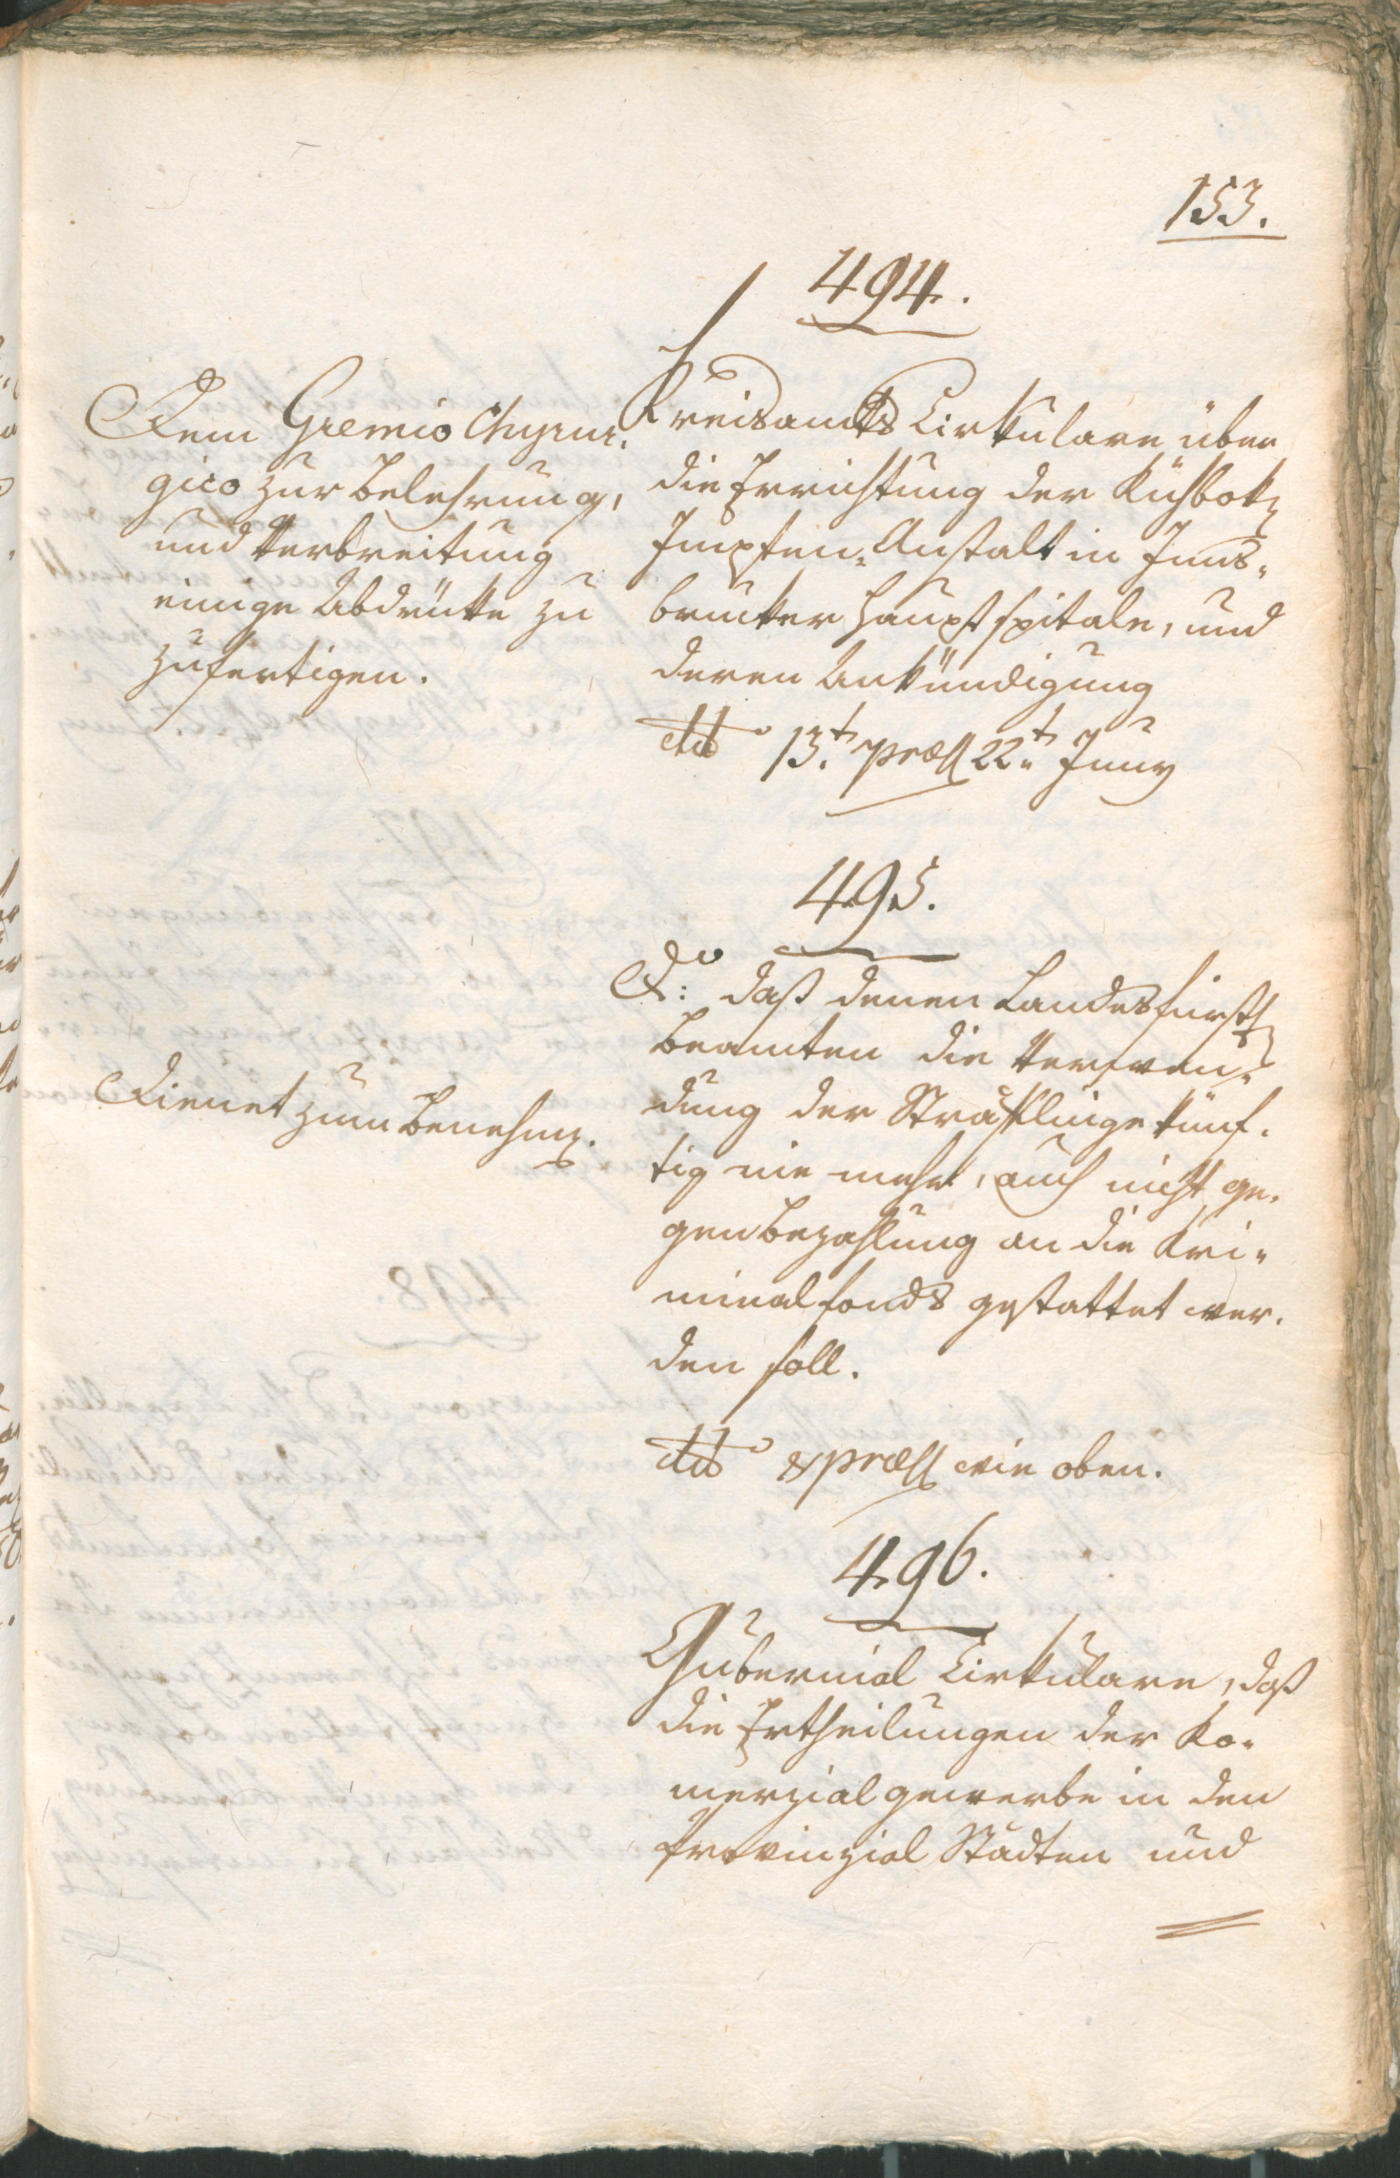 153.
494.
Dem Gremio Chyrur-
gico zur Belehrung,
und Verbreitung
einige Abdrücke zu
zufertigen.
Kreisamts Cirkulare über
die Errichtung der Kühbok
Impfen-Anstalt in Inns-
brucker Hauptspitale, und
deren Ankündigung
dd° 13.t præs 22.t Juny
495.
Dienet zum Benehmen.
D:o daß denen Landesfürstl
Beamten die Verwen-
dung der Sträflinge künf-
tig nie mehr, auch nicht ge-
gen Bezahlung an die Kri-
minalfonds gestattet wer-
den soll.
dd° & præs wie oben.
496.
Gubernial Cirkulare, daß
die Ertheilungen der Ko-
merzialgewerbe in den
Provinzial Städten und